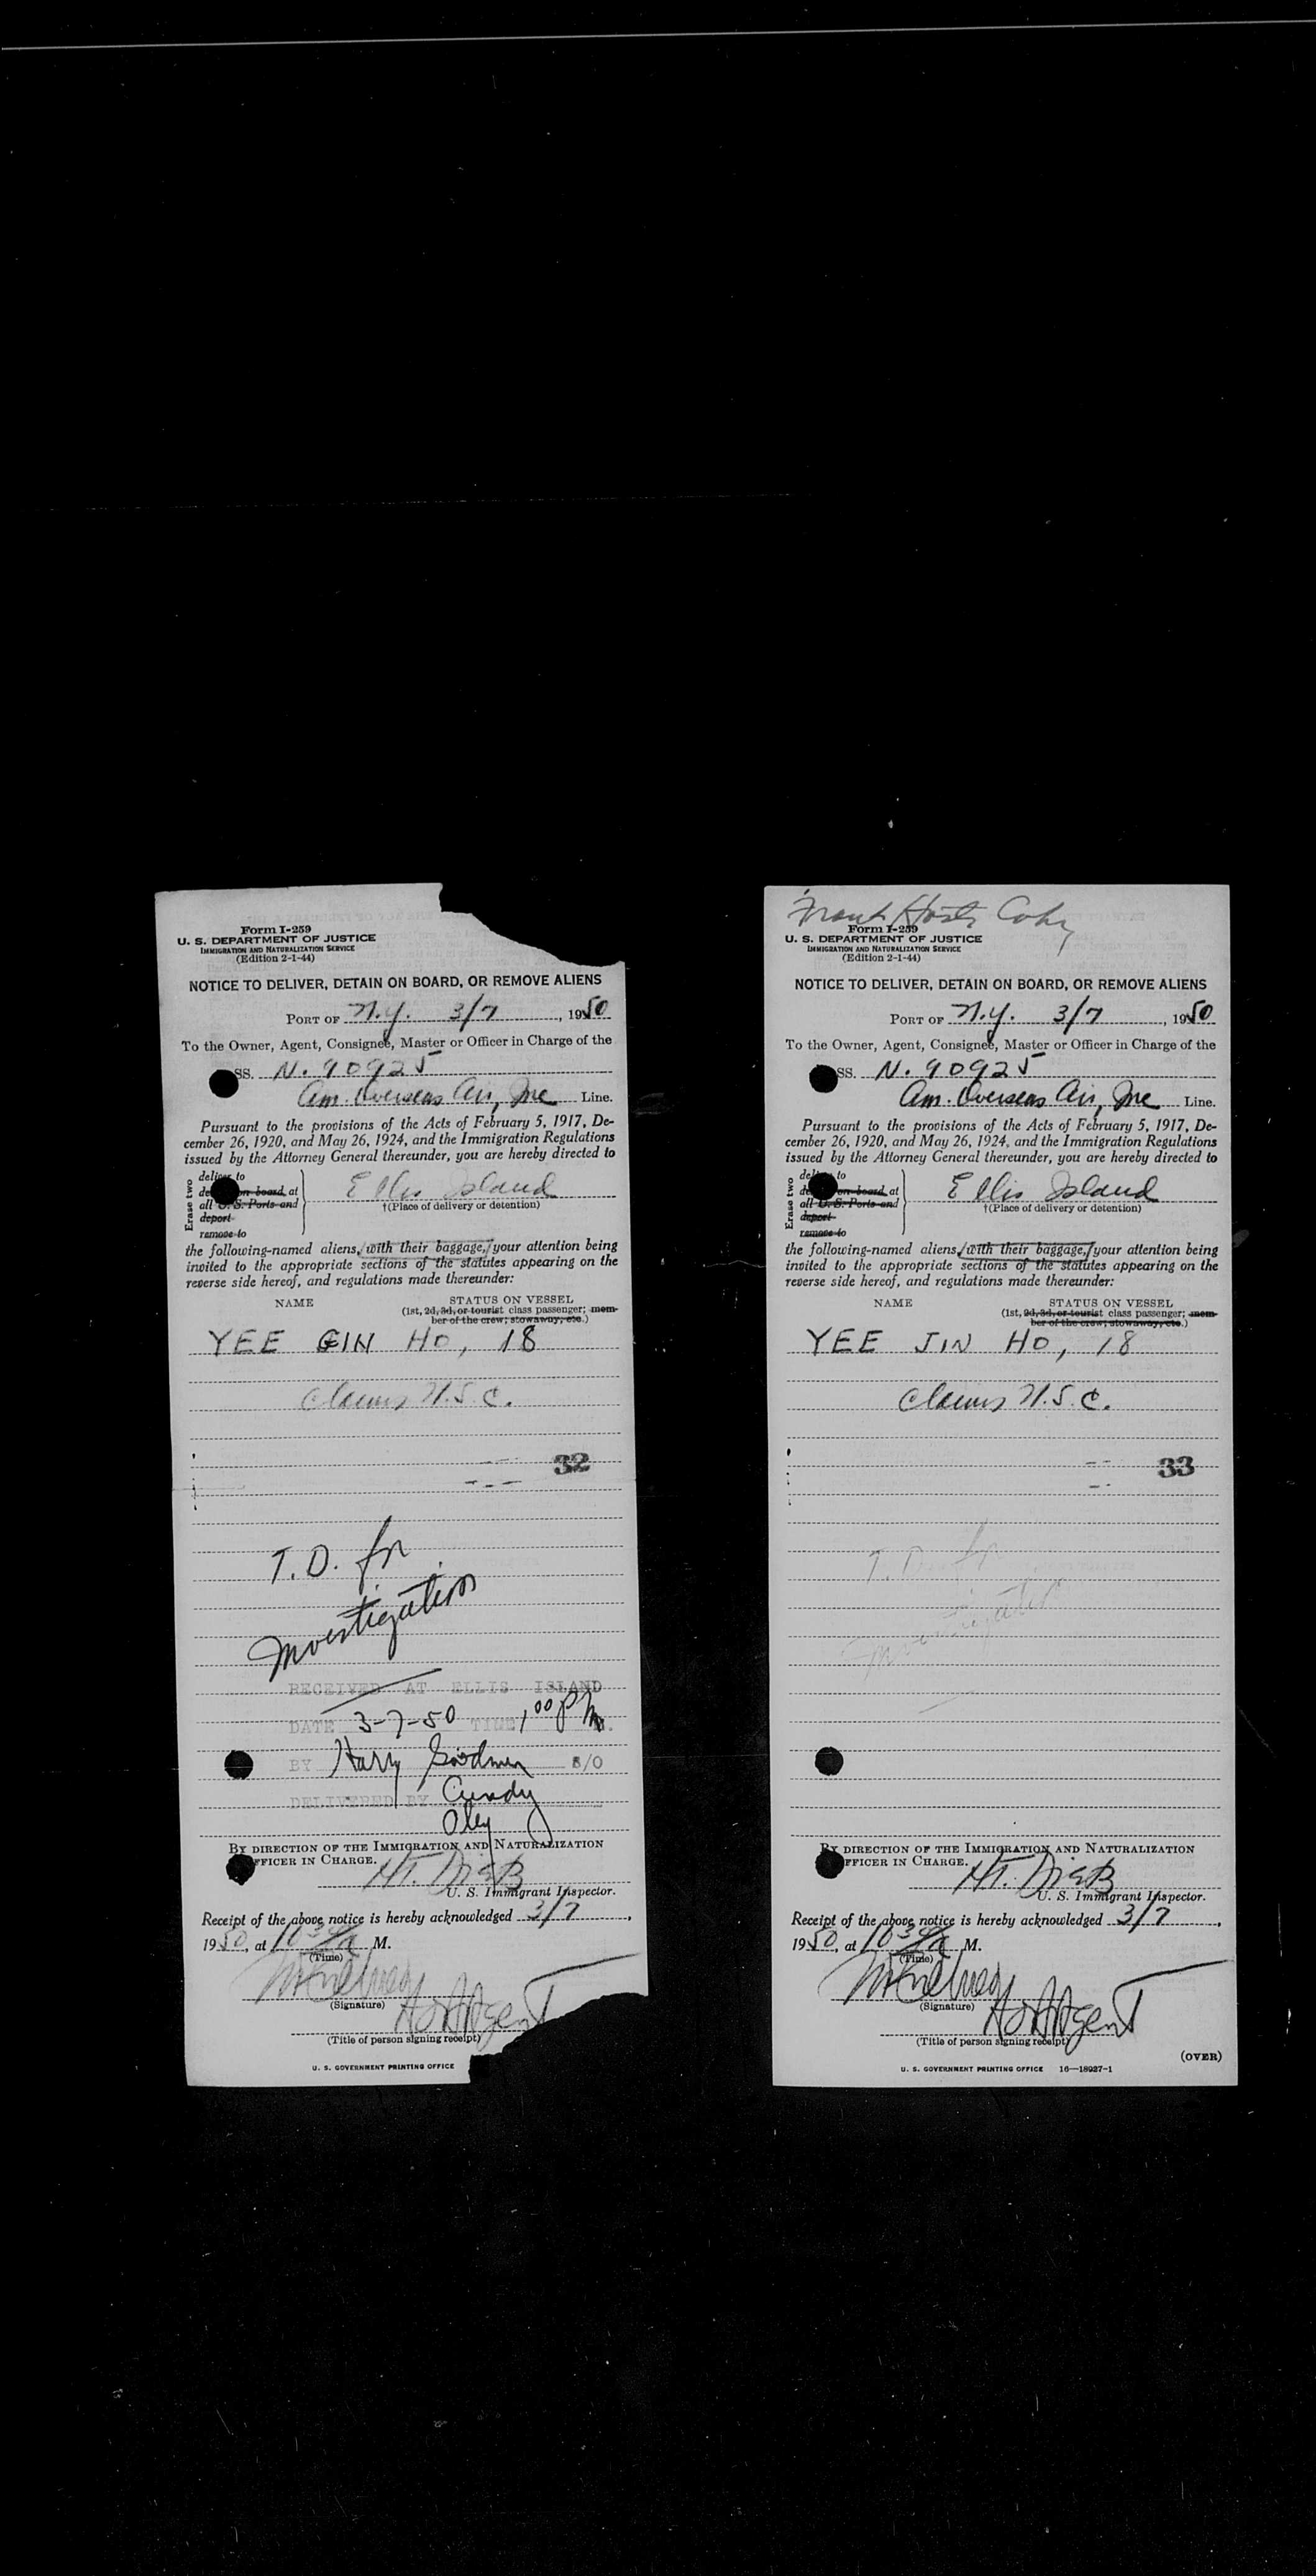 Form I-259
U. S. DEPARTMENT OF JUSTICE
IMMIGRATION AND NATURALIZATION SERVICE
(Edition 2-1-44)
NOTICE TO DELIVER, DETAIN ON BOARD, OR REMOVE ALIENS
PORT OF N.Y. 3/7, 1950
To the Owner, Agent, Consignee, Master or Officer in Charge of the
SS. N. 90925
Am. Overseas Air, Inc Line.
Pursuant to the provisions of the Acts of February 5, 1917, De-
cember 26, 1920, and May 26, 1924, and the Immigration Regulations
issued by the Attorney General thereunder, you are hereby directed to
Erase two
deliver to
on board at
all U. S. Ports and
deport
remove to
Ellis Island
†(Place of delivery or detention)
the following-named aliens, with their baggage, your attention being
invited to the appropriate sections of the statutes appearing on the
reverse side hereof, and regulations made thereunder:
NAME STATUS ON VESSEL
(1st, 2d, 3d, or tourist class passenger; mem-
ber of the crew; stowaway, etc.)
YEE GIN HO, 18
Claims U.S.C.
32
T.D. for
Investigation
RECEIVED AT ELLIS ISLAND
DATE 3-7-50 TIME 1 00 P M.
BY Harry Goodman S/O
DELIVERED BY
BY DIRECTION OF THE IMMIGRATION AND NATURALIZATION
OFFICER IN CHARGE.
U. S. Immigrant Inspector.
Receipt of the above notice is hereby acknowledged 3/7,
1950, at 10 30 A M.
(Time)
(Signature)
Agent
(Title of person signing receipt)
U. S. GOVERNMENT PRINTING OFFICE
Form I-259
U. S. DEPARTMENT OF JUSTICE
IMMIGRATION AND NATURALIZATION SERVICE
(Edition 2-1-44)
NOTICE TO DELIVER, DETAIN ON BOARD, OR REMOVE ALIENS
PORT OF N.Y. 3/7, 1950
To the Owner, Agent, Consignee, Master or Officer in Charge of the
SS. N. 90925
Am. Overseas Air, Inc Line.
Pursuant to the provisions of the Acts of February 5, 1917, De-
cember 26, 1920, and May 26, 1924, and the Immigration Regulations
issued by the Attorney General thereunder, you are hereby directed to
Erase two
deliver to
on board at
all U. S. Ports and
deport
remove to
Ellis Island
†(Place of delivery or detention)
the following-named aliens, with their baggage, your attention being
invited to the appropriate sections of the statutes appearing on the
reverse side hereof, and regulations made thereunder:
NAME STATUS ON VESSEL
(1st, 2d, 3d, or tourist class passenger; mem-
ber of the crew; stowaway, etc.)
YEE JIN HO, 18
Claims U.S.C.
33
T.D. for
Investigation
BY DIRECTION OF THE IMMIGRATION AND NATURALIZATION
OFFICER IN CHARGE.
U. S. Immigrant Inspector.
Receipt of the above notice is hereby acknowledged 3/7,
1950, at 10 30 A M.
(Time)
(Signature)
Agent
(Title of person signing receipt)
(OVER)
U. S. GOVERNMENT PRINTING OFFICE 16—18927-1